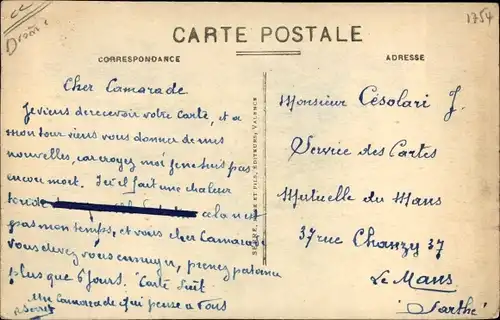 Drôme
1254
CARTE POSTALE
CORRESPONDANCE
ADRESSE
Cher Camarade
Je viens de recevoir votre carte, et a
mon tour viens vous donner de mes
nouvelles, car croyez moi je ne suis pas
encore mort. Ici il fait une chaleur
cela n'est
pas mon temps, et vous cher Camarade
vous devez vous ennuyer, prenez patience
plus que 6 jours. Carte suit
Un Camarade qui pense a vous
ET FILS, ÉDITEURS, VALENCE
Monsieur Césolari J.
Service des Cartes
Mutuelle du Mans
37 rue Chanzy 37
Le Mans
(Sarthe)